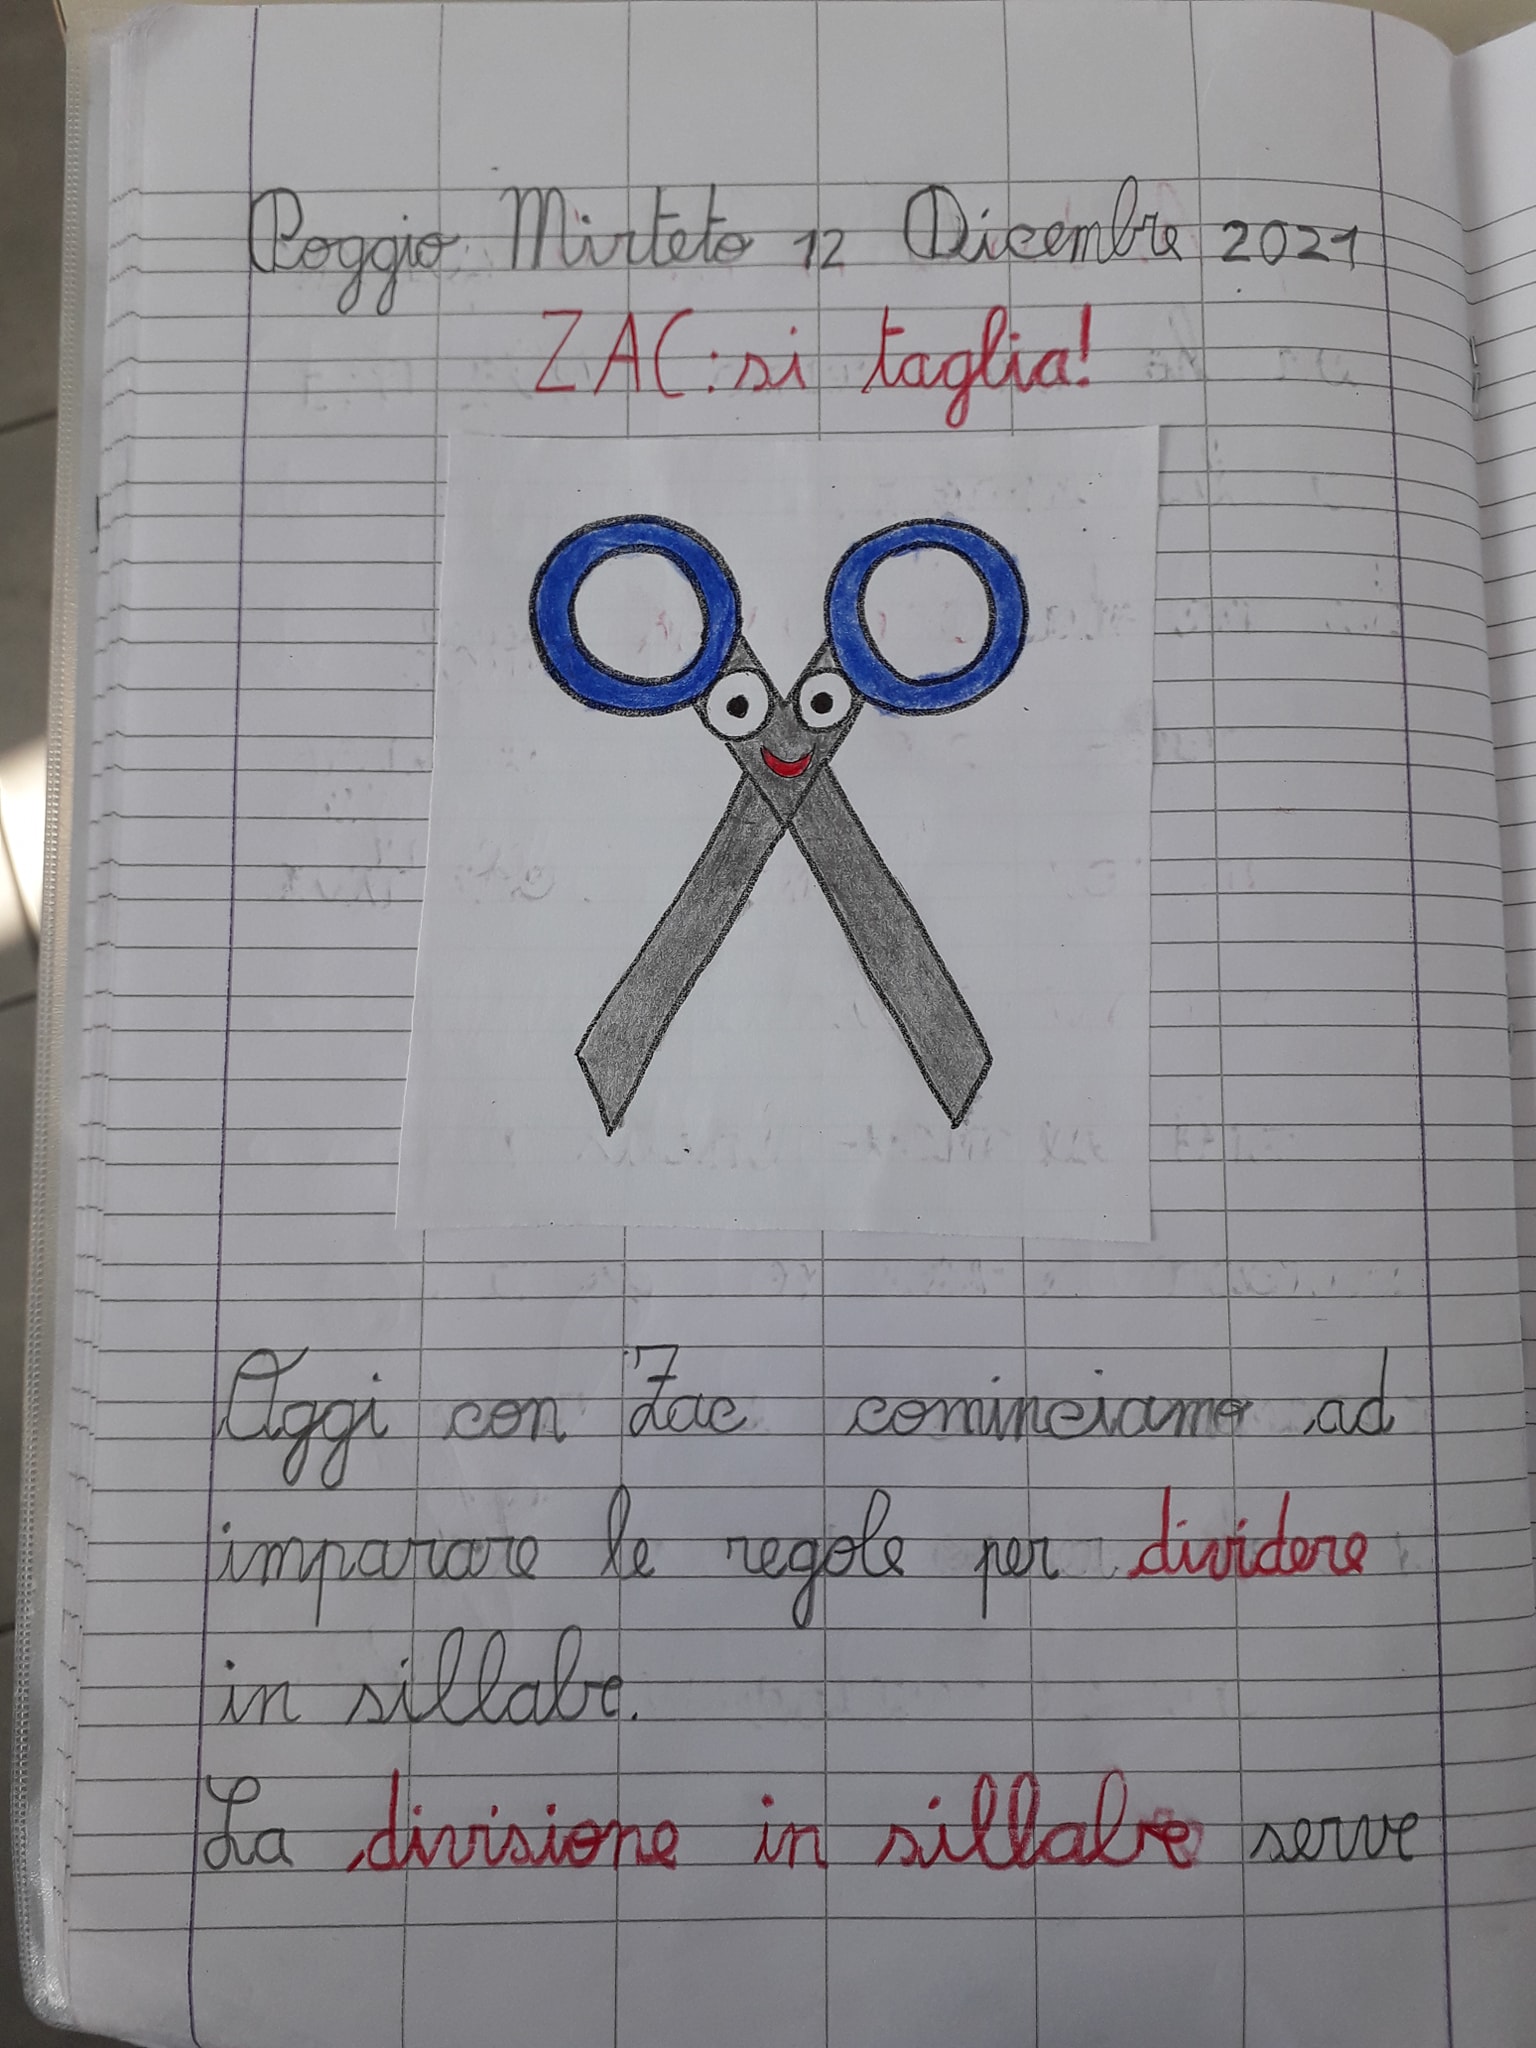 Poggio Mirteto 12 Dicembre 2021
ZAC: si taglia!
Oggi con Zac cominciamo ad
imparare le regole per dividere
in sillabe.
La divisione in sillabe serve